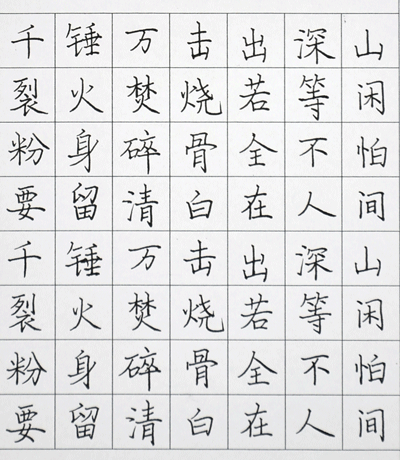 千锤万击出深山
裂火焚烧若等闲
粉身碎骨全不怕
要留清白在人间
千锤万击出深山
裂火焚烧若等闲
粉身碎骨全不怕
要留清白在人间